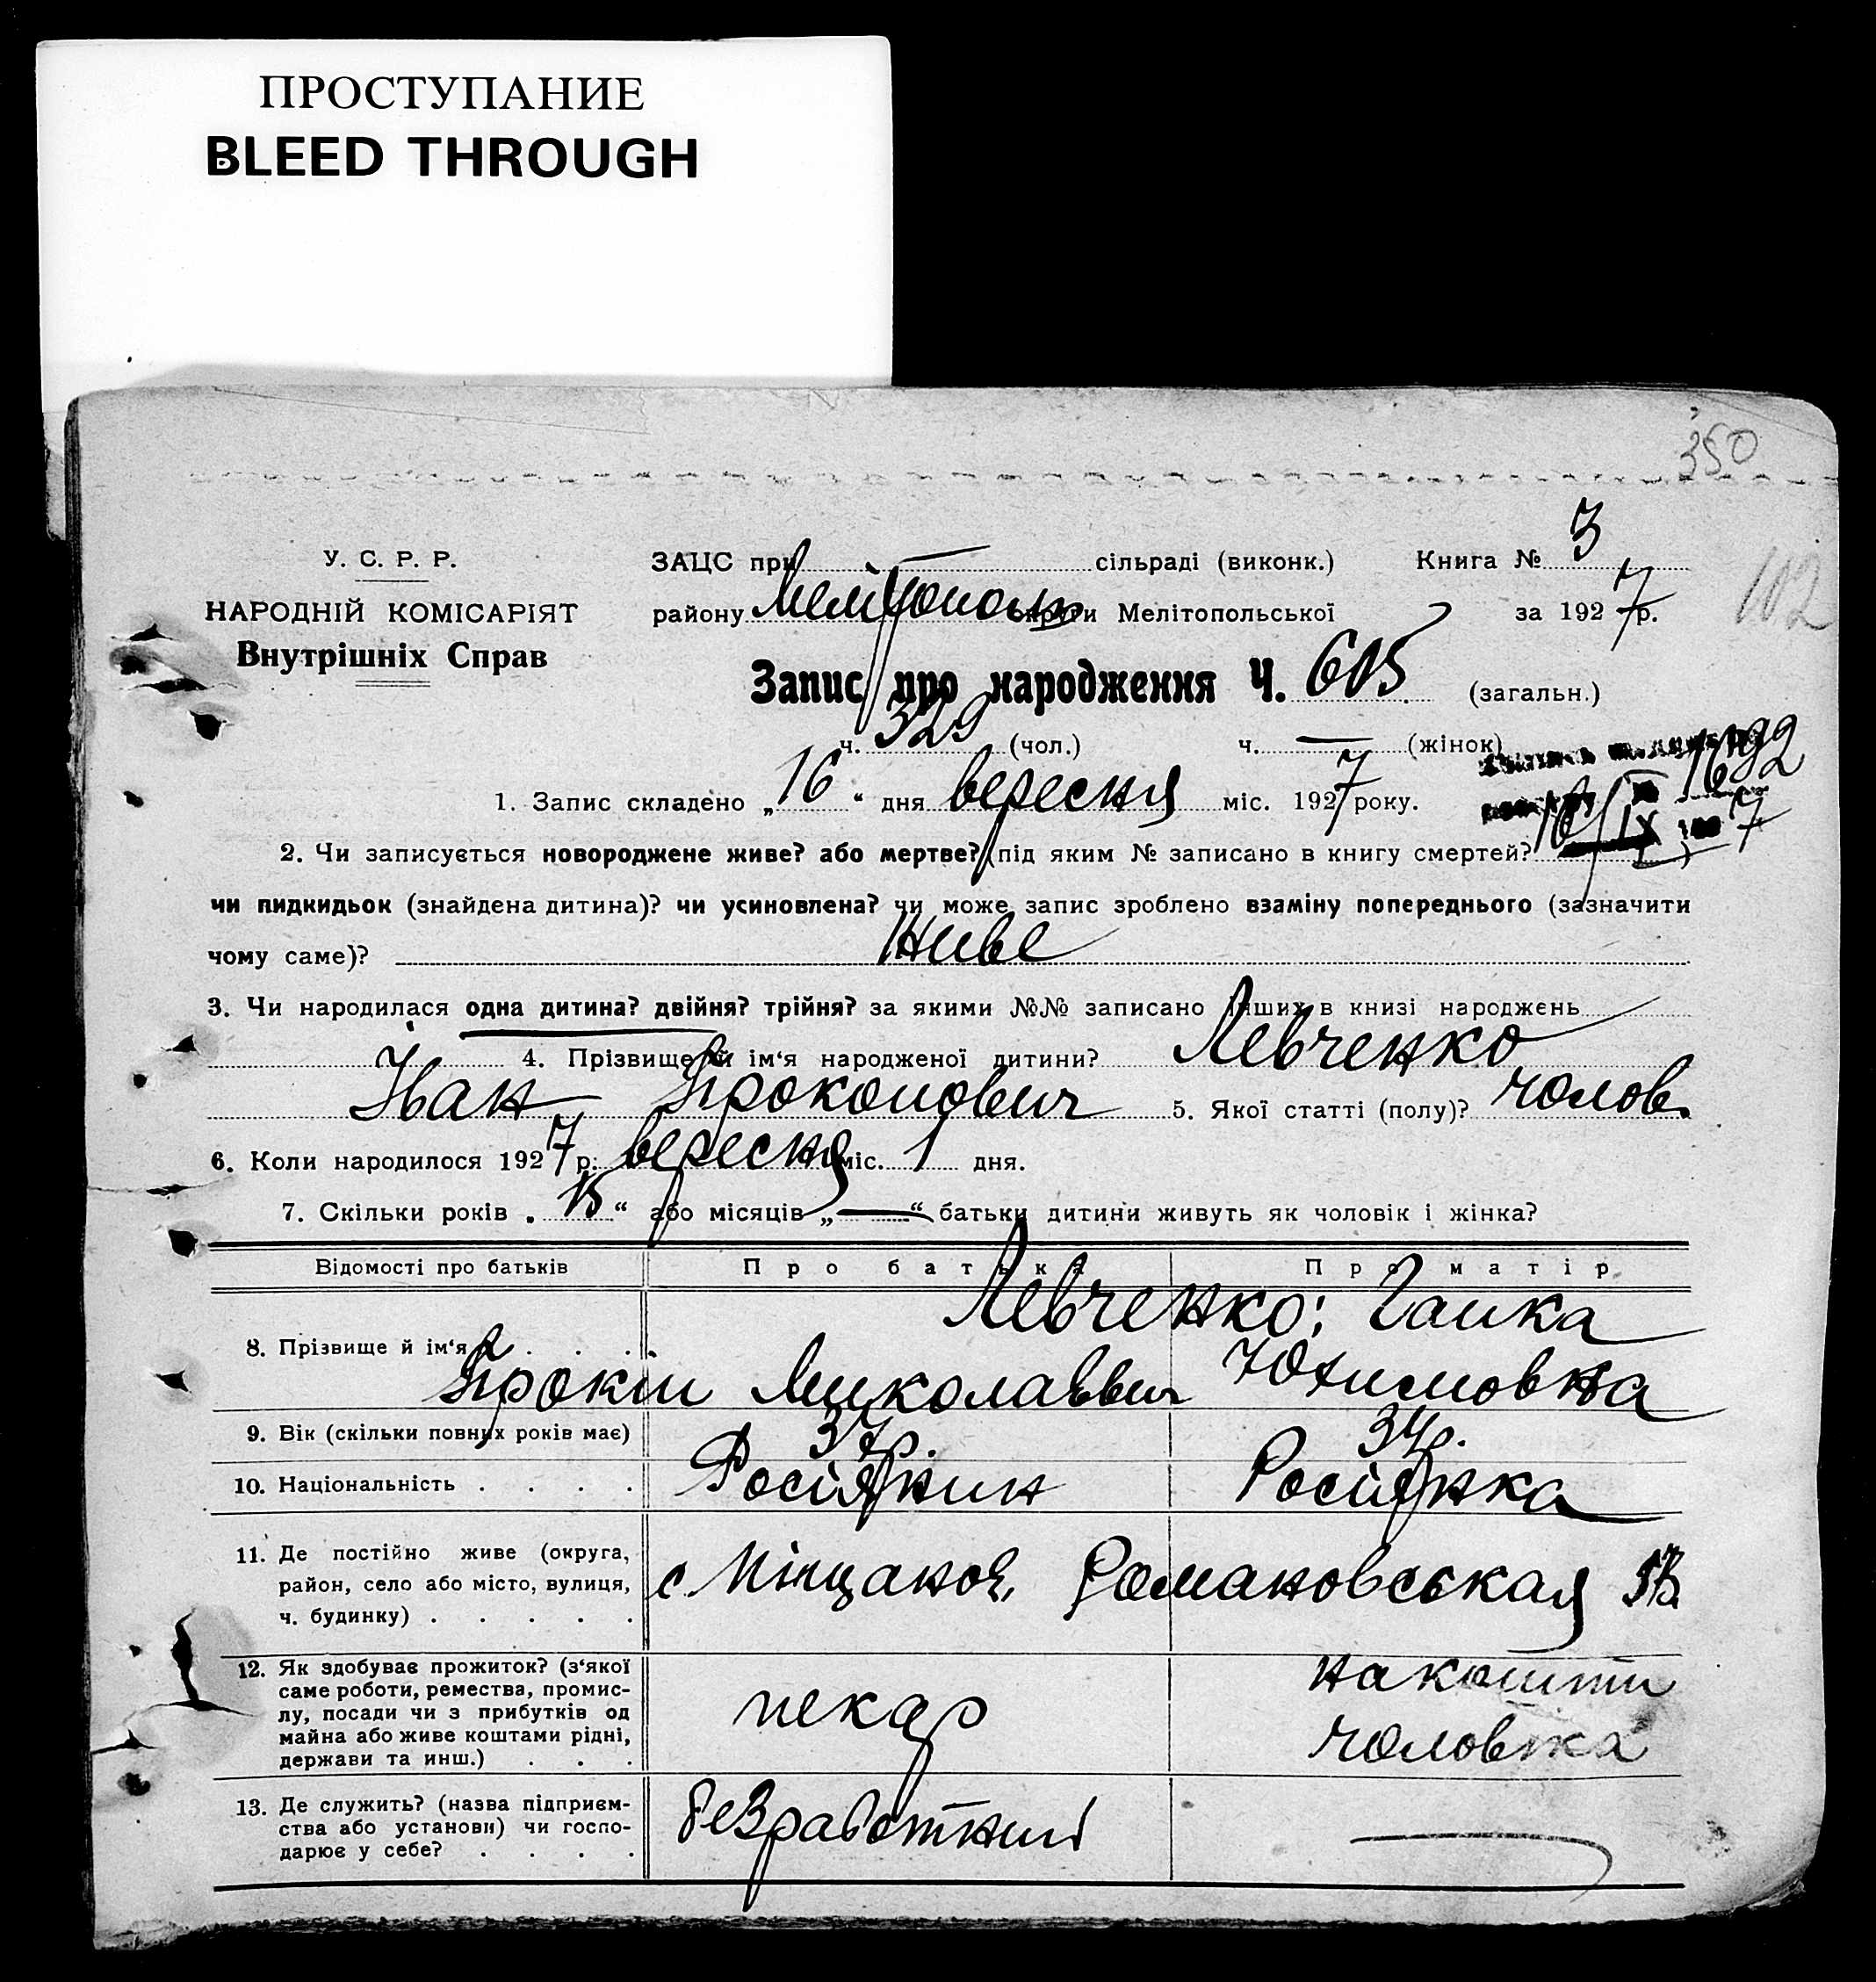 ПРОСТУПАНИЕ
BLEED THROUGH
350
У. С. Р. Р.
НАРОДНІЙ КОМІСАРІЯТ
Внутрішніх Справ
ЗАЦС при — сільраді (виконк.) Книга № 3
району Мелітополь округи Мелітопольської за 1927 р.
102
Запис про народження Ч. 605 (загальн.)
ч. 329 (чол.) ч. — (жінок)
1692
1. Запис складено „16“ дня вересня міс. 1927 року.
16/IX 7
2. Чи записується новороджене живе? або мертве? (під яким № записано в книгу смертей? )
чи пидкидьок (знайдена дитина)? чи усиновлена? чи може запис зроблено взаміну попереднього (зазначити
чому саме)? Живе
3. Чи народилася одна дитина? двійня? трійня? за якими №№ записано інших в книзі народжень
4. Прізвище й ім‘я народженої дитини? Левченко
Іван Прокопович 5. Якої статті (полу)? чолов.
6. Коли народилося 1927 р. вересня міс. 1 дня.
7. Скільки років „15“ або місяців „—“ батьки дитини живуть як чоловік і жінка?
Відомості про батьків Про батька Про матір
8. Прізвище й ім‘я . . . . Левченко: Ганка
Прокіп Миколаввич Юхимовна
9. Вік (скільки повних років має) 37р. 34р.
10. Національність . . . . Росіянин Росіянка
11. Де постійно живе (округа,
район, село або місто, вулиця,
ч. будинку) . . . . .
с. Романовсская
12. Як здобуває прожиток? (з‘якої
саме роботи, ремества, промис-
лу, посади чи з прибутків од
майна або живе коштами рідні,
держави та инш.) . . .
пекар
на кошти
чоловіка
13. Де служить? (назва підприєм-
ства або установи) чи госпо-
дарює у себе? . . . .
безработний —